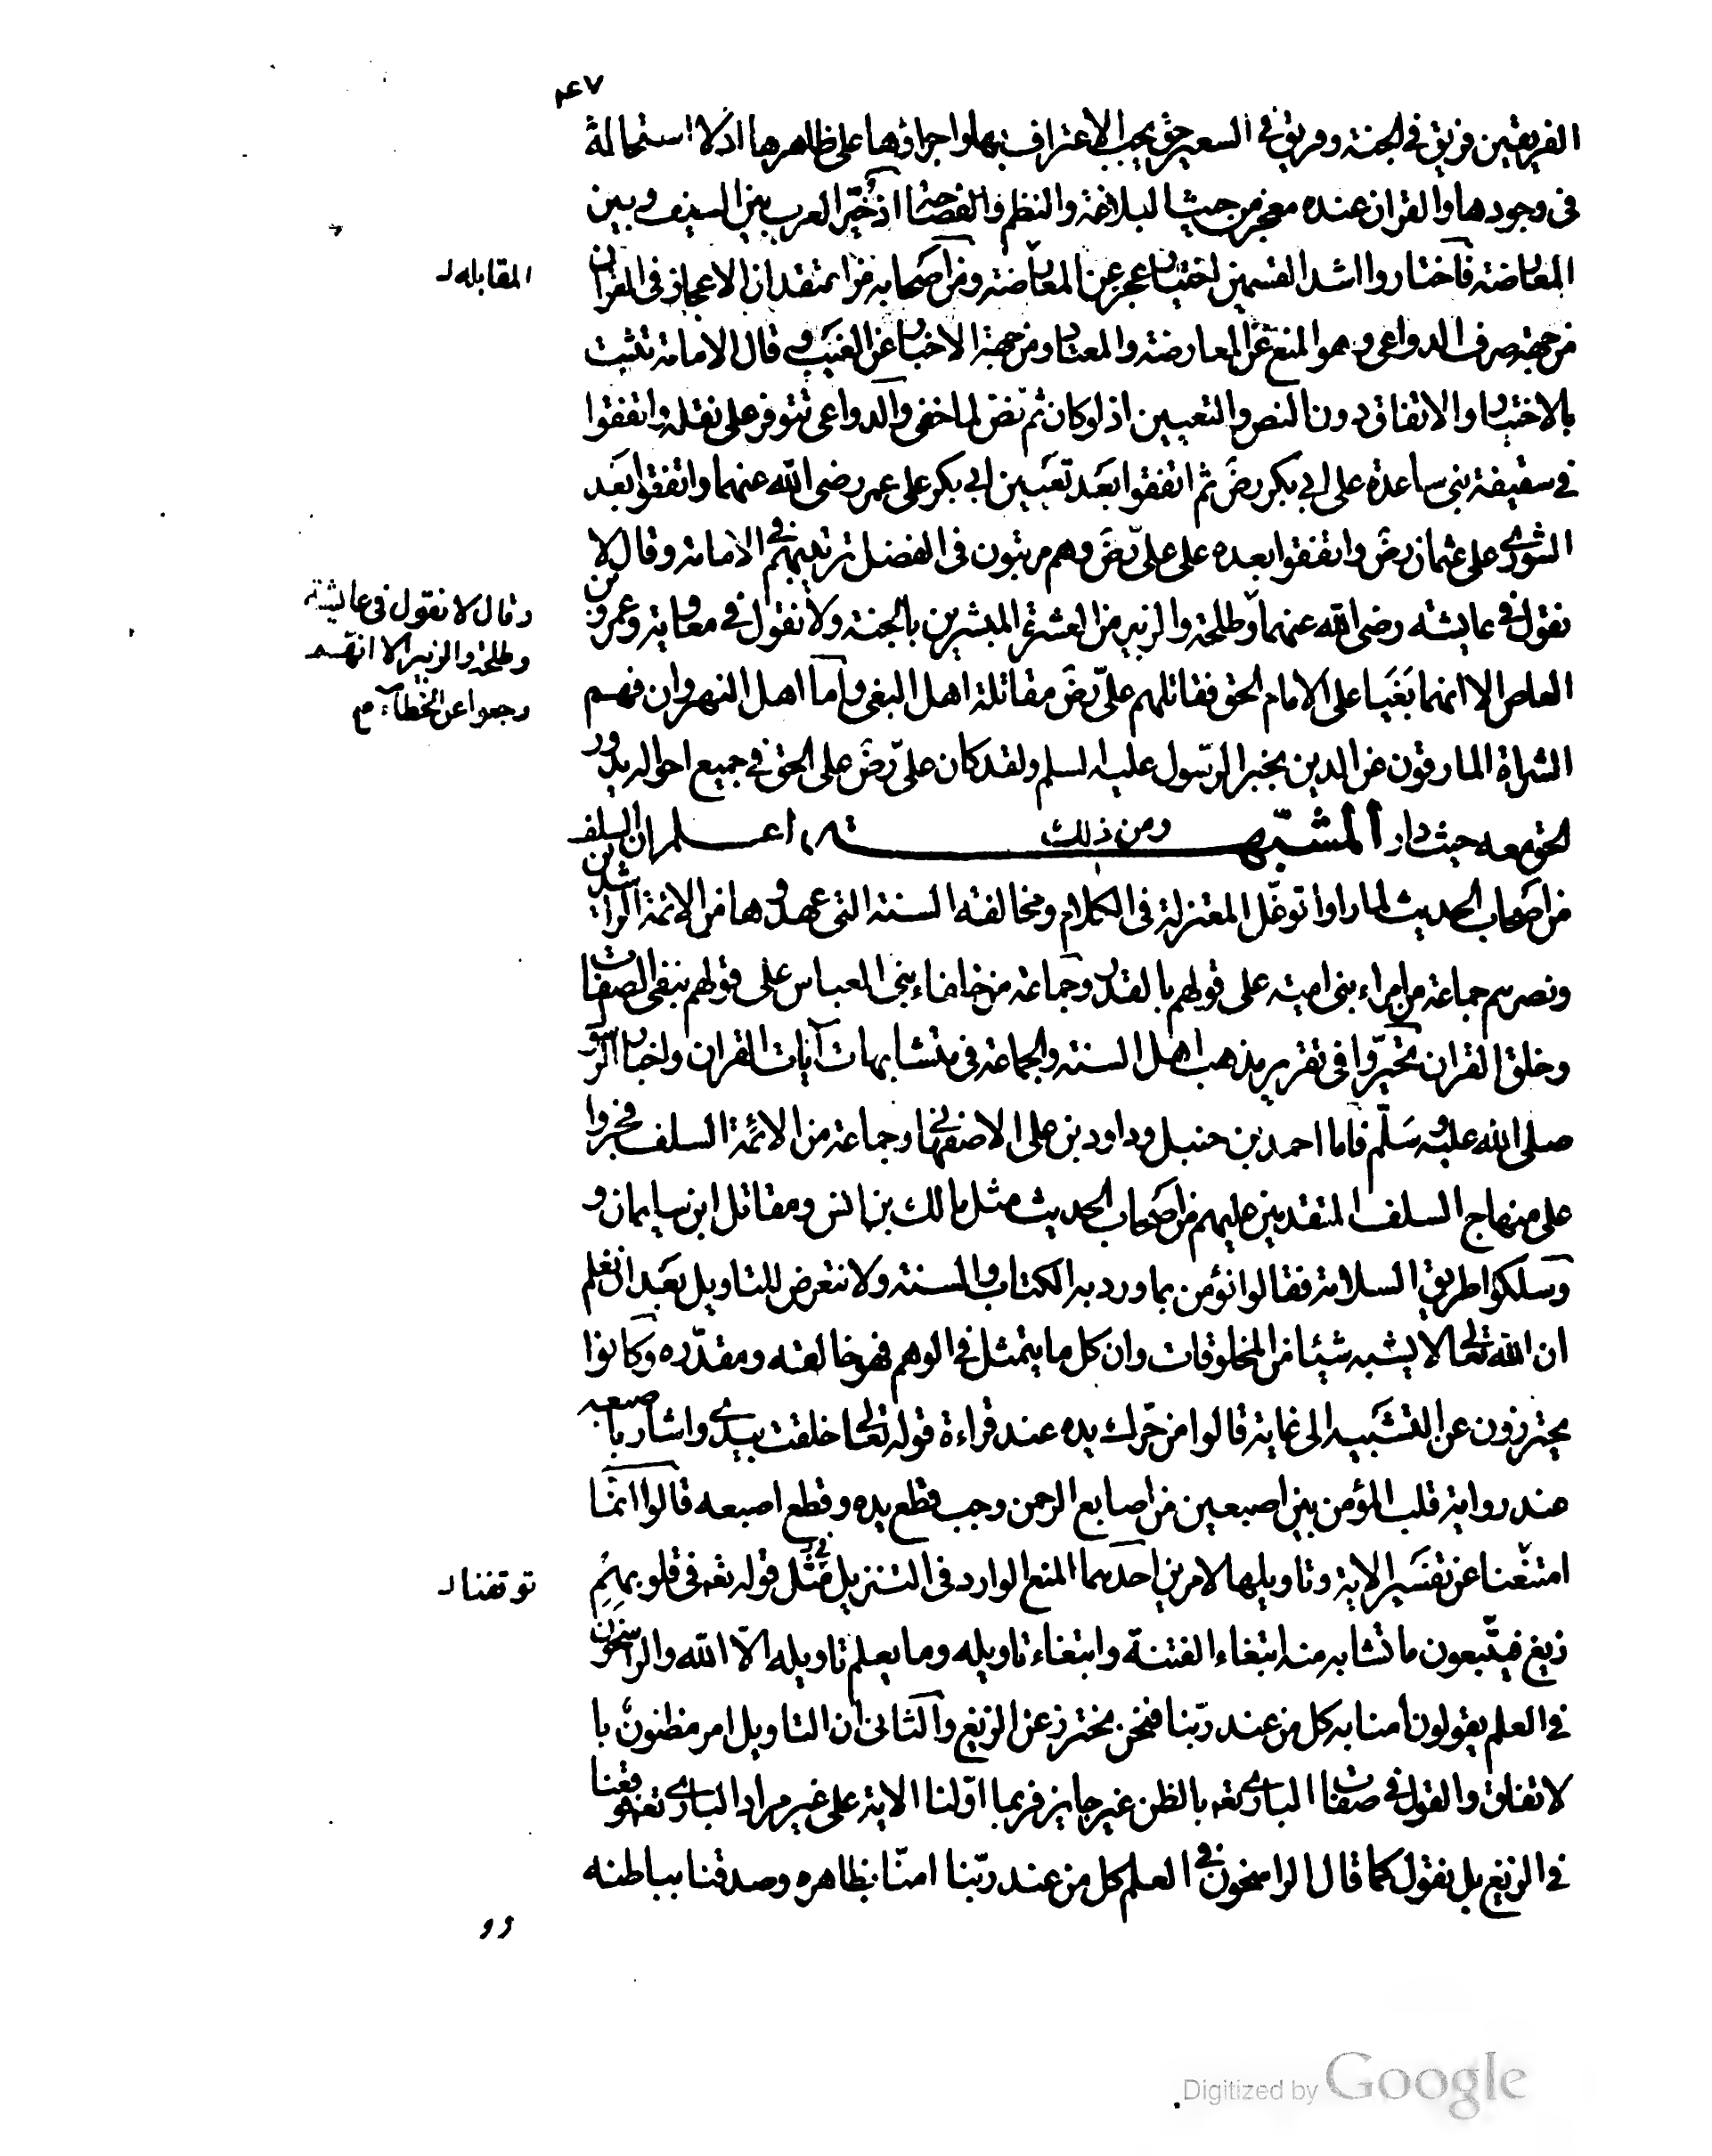 ٤٧
الفريقين فريق في الجنة وفريق في السعير حق يجب الاعتراف بها واجراؤها على ظاهرها اذ لا استحالة
فى وجودها والقران عنده معجز من حيث البلاغة والنظم والفصاحة اذ خير العرب بين السيف وبين
المعارضة فاختاروا اشد القسمين اختيار عجز عن المعارضة ومن اصحابه من اعتقد ان الاعجاز فى القران
المقابله
من جهة صرف الدواعى وهو المنع عن المعارضة والمعتاد ومن جهة الاخبار عن الغيب وقال الامامة تثبت
بالاختيار والاتفاق دون النص والتعيين اذ لو كان ثم نص لما خفى والدواعى تتوفر على نقله واتفقوا
في سقيفة بنى ساعدة على ابي بكر رض ثم اتفقوا بعد تعيين ابي بكر على عمر رضى الله عنهما واتفقوا بعد
الشورى على عثمان رض واتفقوا بعده على على رض وهم مرتبون فى الفضل ترتيبهم في الامامة وقال لا
نقول في عايشه رضى الله عنهما وطلحة والزبير من العشرة المبشرين بالجنة ولا نقول في معاوية وعمرو بن
وقال لا نقول فى عايشة
وطلحة والزبير الا انهم
رجعوا عن الخطاء م
العاص الا انهما بغيا على الامام الحق فقاتلهم على رض مقاتلة اهل البغى واما اهل النهروان فهم
الشراة المارقون عن الدين بخبر الرسول عليه السلم ولقد كان على رض على الحق في جميع احواله يدور
الحق معه حيث دار ومن ذلك المشبهة اعلم ان السلف
من اصحاب الحديث لما راوا توغل المعتزلة فى الكلام ومخالفة السنة التى عهدوها من الائمة الراشدين
ونصرهم جماعة من امراء بنى امية على قولهم بالقدر وجماعة من خلفاء بنى العباس على قولهم بنفى الصفات
وخلق القران تحيروا فى تقرير مذهب اهل السنة والجماعة فى متشابهات آيات القران واخبار الرسول
صلى الله عليه وسلم فاما احمد بن حنبل وداود بن على الاصفهانى وجماعة من الائمة السلف فجروا
على منهاج السلف المتقدمين عليهم من اصحاب الحديث مثل مالك بن انس ومقاتل ابن سليمان و
وسلكوا طريق السلامة فقالوا نؤمن بما ورد به الكتاب والسنة ولا نتعرض للتاويل بعد ان نعلم
ان الله تعالى لا يشبه شيئا من المخلوقات وان كل ما يتمثل في الوهم فهو خالقه ومقدره وكانوا
يحترزون عن التشبيه الى غاية قالوا من حرك يده عند قراءة قوله تعالى خلقت بيدى واشار باصبعه
عند رواية قلب المؤمن بين اصبعين من اصابع الرحمن وجب قطع يده وقطع اصبعه قالوا انما
امتنعنا عن تفسير الاية وتاويلها لامرين احدهما المنع الوارد فى التنزيل في مثل قوله تعه فى قلوبهم
توقفنا
زيغ فيتبعون ما تشابه منه ابتغاء الفتنة وابتغاء تاويله وما يعلم تاويله الا الله والراسخون
في العلم يقولون امنا به كل من عند ربنا فنحن نحترز عن الزيغ والثانى ان التاويل امر مظنون با
لاتفاق والقول في صفات البارى تعه بالظن غير جايز فربما اولنا الاية على غير مراد البارى تعه فوقعنا
في الزيغ بل نقول كما قال الراسخون في العلم كل من عند ربنا امنا بظاهره وصدقنا بباطنه
Digitized by Google